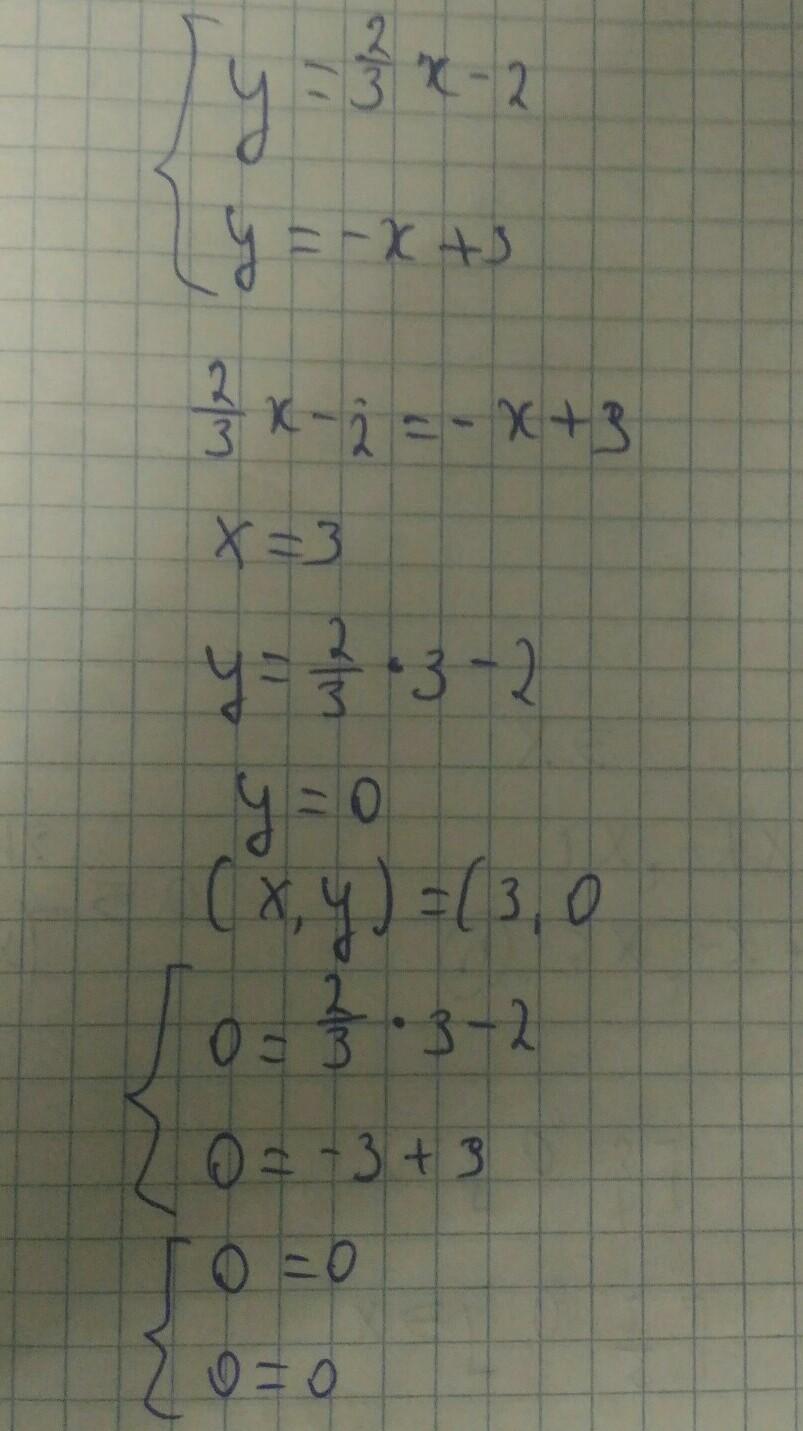 y = 2/3 x - 2
y = -x + 3
2/3 x - 2 = -x + 3
x = 3
y = 2/3 · 3 - 2
y = 0
(x, y) = (3, 0
0 = 2/3 · 3 - 2
0 = -3 + 3
0 = 0
0 = 0